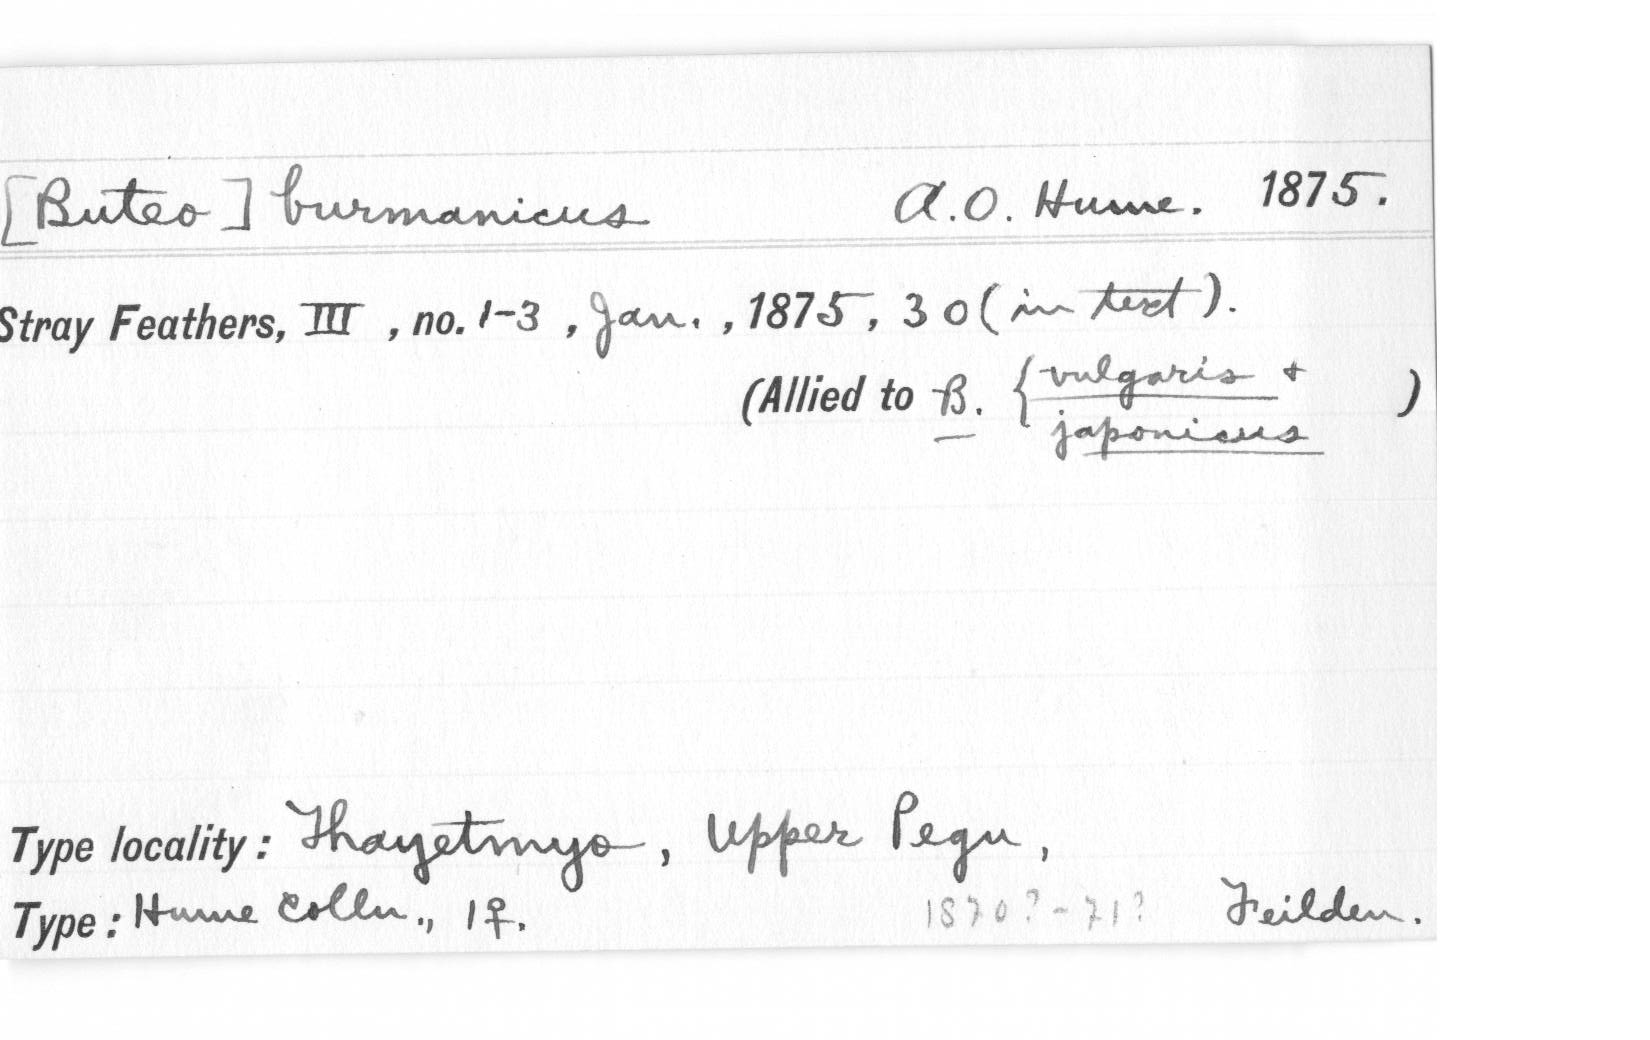 [Buteo] burmanicus A.O. Hume. 1875.
Stray Feathers, III, no. 1-3, Jan., 1875, 30 (in text).
(Allied to B. { vulgaris +
japonicus )
Type locality: Thayetmyo, Upper Pegu,
Type: Hume Colln., 1♀. 1870?-71? Feilden.